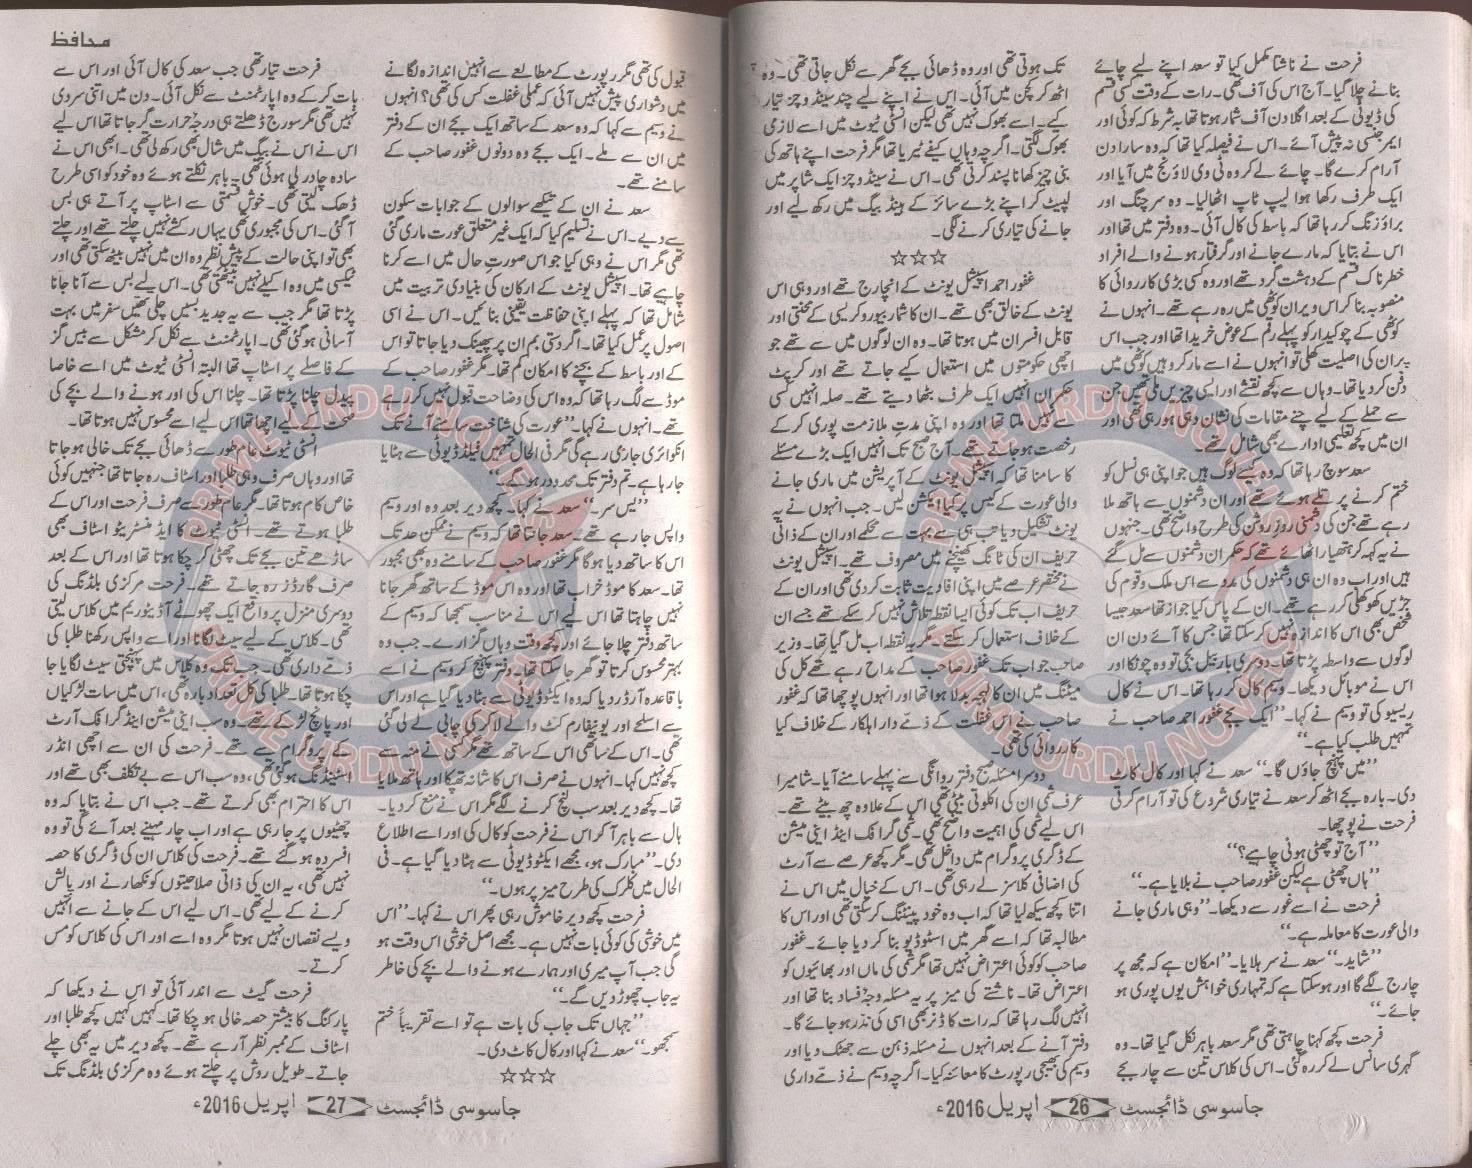 فرحت نے ناشتا مکمل کیا تو سعد اپنے لیے چائے
بنانے چلا گیا۔ آج اس کی آف تھی۔ رات کے وقت کسی قسم
کی ڈیوٹی کے بعد اگلا دن آف شمار ہوتا تھا بہ شرط کہ کوئی اور
ایمرجنسی نہ پیش آئے۔ اس نے فیصلہ کیا تھا کہ وہ سارا دن
آرام کرے گا۔ چائے لے کر وہ ٹی وی لاؤنج میں آیا اور
ایک طرف رکھا ہوا لیپ ٹاپ اٹھا لیا۔ وہ سرچنگ اور
براؤزنگ کر رہا تھا کہ باسط کی کال آئی۔ وہ دفتر میں تھا اور
اس نے بتایا کہ مارے جانے اور گرفتار ہونے والے افراد
خطرناک قسم کے دہشت گرد تھے اور وہ کسی بڑی کارروائی کا
منصوبہ بنا کر اس ویران کوٹھی میں رہ رہے تھے۔ انہوں نے
کوٹھی کے چوکیدار کو پہلے رقم کے عوض خریدا تھا اور جب اس
پر ان کی اصلیت کھلی تو انہوں نے اسے مار کر وہیں کوٹھی میں
دفن کر دیا تھا۔ وہاں سے کچھ نقشے اور ایسی چیزیں ملی تھیں جن
سے حملے کے لیے چنے مقامات کی نشان دہی ہو رہی تھی اور
ان میں کچھ تعلیمی ادارے بھی شامل تھے۔
سعد سوچ رہا تھا کہ وہ کیسے لوگ ہیں جو اپنی ہی نسل کو
ختم کرنے پر تلے ہوئے تھے اور ان دشمنوں سے ہاتھ ملا
رہے تھے جن کی دشمنی روزِ روشن کی طرح واضح تھی۔ جنہوں
نے یہ کہہ کر ہتھیار اٹھائے تھے کہ حکمران دشمنوں سے مل گئے
ہیں اور اب وہ ان ہی دشمنوں کی مدد سے اس ملک و قوم کی
جڑیں کھوکھلی کر رہے تھے۔ ان کے پاس کیا جواز تھا سعد جیسا
شخص بھی اس کا اندازہ نہیں کر سکتا تھا جس کا آئے دن ان
لوگوں سے واسطہ پڑتا تھا۔ دوسری بار بیل بجی تو وہ چونکا اور
اس نے موبائل دیکھا۔ وسیم کال کر رہا تھا۔ اس نے کال
ریسیو کی تو وسیم نے کہا۔ ’’ایک بجے غفور احمد صاحب نے
تمہیں طلب کیا ہے۔‘‘
’’میں پہنچ جاؤں گا۔‘‘ سعد نے کہا اور کال کاٹ
دی۔ بارہ بجے اٹھ کر سعد نے تیاری شروع کی تو آرام کرتی
فرحت نے پوچھا۔
’’آج تو چھٹی ہونی چاہیے؟‘‘
’’ہاں چھٹی ہے لیکن غفور صاحب نے بلایا ہے۔‘‘
فرحت نے اسے غور سے دیکھا۔ ’’وہی ماری جانے
والی عورت کا معاملہ ہے۔‘‘
’’شاید۔‘‘ سعد نے سر ہلایا۔ ’’امکان ہے کہ مجھ پر
چارج لگے گا اور ہو سکتا ہے کہ تمہاری خواہش یوں پوری ہو
جائے۔‘‘
فرحت کچھ کہنا چاہتی تھی مگر سعد باہر نکل گیا تھا۔ وہ
گہری سانس لے کر رہ گئی۔ اس کی کلاس تین سے چار بجے
تک ہوتی تھی اور وہ ڈھائی بجے گھر سے نکل جاتی تھی۔ وہ
اٹھ کر کچن میں آئی۔ اس نے اپنے لیے چند سینڈوچز تیار
کیے۔ اسے بھوک نہیں تھی لیکن انسٹی ٹیوٹ میں اسے لازمی
بھوک لگتی۔ اگرچہ وہاں کیفے ٹیریا تھا مگر فرحت اپنے ہاتھ کی
بنی چیز کھانا پسند کرتی تھی۔ اس نے سینڈوچز ایک شاپر میں
لپیٹ کر اپنے بڑے سائز کے ہینڈ بیگ میں رکھ لیے اور
جانے کی تیاری کرنے لگی۔
☆☆☆
غفور احمد اسپیشل یونٹ کے انچارج تھے اور وہی اس
یونٹ کے خالق بھی تھے۔ ان کا شمار بیوروکریسی کے محنتی اور
قابل افسران میں ہوتا تھا۔ وہ ان لوگوں میں سے تھے جو
اچھی حکومتوں میں استعمال کیے جاتے تھے اور کرپٹ
حکمران انہیں ایک طرف بٹھا دیتے تھے۔ صلہ انہیں کسی
سے نہیں ملتا تھا اور وہ اپنی مدتِ ملازمت پوری کر کے
رخصت ہو جاتے تھے۔ آج صبح تک انہیں ایک بڑے مسئلے
کا سامنا تھا کہ اسپیشل یونٹ کے آپریشن میں ماری جانے
والی عورت کے کیس پر کیا ایکشن لیں۔ جب انہوں نے یہ
یونٹ تشکیل دیا تب ہی سے بہت سے محکمے اور ان کے ذاتی
حریف ان کی ٹانگ کھینچنے میں مصروف تھے۔ اسپیشل یونٹ
نے مختصر عرصے میں اپنی افادیت ثابت کر دی تھی اور ان کے
حریف اب تک کوئی ایسا نقطہ تلاش نہیں کر سکے تھے جسے ان
کے خلاف استعمال کر سکتے۔ مگر یہ نقطہ اب مل گیا تھا۔ وزیر
صاحب جو اب تک غفور صاحب کے مداح رہے تھے کل کی
میٹنگ میں ان کا لہجہ بدلا ہوا تھا اور انہوں پوچھا تھا کہ غفور
صاحب نے اس غفلت کے ذمّے دار اہلکار کے خلاف کیا
کارروائی کی تھی۔
دوسرا مسئلہ صبح دفتر روانگی سے پہلے سامنے آیا۔ شامیرا
عرف شمی ان کی اکلوتی بیٹی تھی اس کے علاوہ چھ بیٹے تھے۔
اس لیے شمی کی اہمیت واضح تھی۔ شمی گرافک اینڈ اینی میشن
کے ڈگری پروگرام میں داخل تھی۔ مگر کچھ عرصے سے آرٹ
کی اضافی کلاسز لے رہی تھی۔ اس کے خیال میں اس نے
اتنا کچھ سیکھ لیا تھا کہ اب وہ خود پینٹنگ کر سکتی تھی اور اس کا
مطالبہ تھا کہ اسے گھر میں اسٹوڈیو بنا کر دیا جائے۔ غفور
صاحب کو کوئی اعتراض نہیں تھا مگر شمی کی ماں اور بھائیوں کو
اعتراض تھا۔ ناشتے کی میز پر یہ مسئلہ وجۂ فساد بنا تھا اور
انہیں لگ رہا تھا کہ رات کا ڈنر بھی اسی کی نذر ہو جائے گا۔
دفتر آنے کے بعد انہوں نے مسئلہ ذہن سے جھٹک دیا اور
وسیم کی بھیجی رپورٹ کا معائنہ کیا۔ اگرچہ وسیم نے ذمّے داری
جاسوسی ڈائجسٹ 26 اپریل 2016ء
محافظ
قبول کی تھی مگر رپورٹ کے مطالعے سے انہیں اندازہ لگانے
میں دشواری پیش نہیں آئی کہ عملی غفلت کس کی تھی؟ انہوں
نے وسیم سے کہا کہ وہ سعد کے ساتھ ایک بجے ان کے دفتر
میں ان سے ملے۔ ایک بجے وہ دونوں غفور صاحب کے
سامنے تھے۔
سعد نے ان کے تیکھے سوالوں کے جوابات سکون
سے دیے۔ اس نے تسلیم کیا کہ ایک غیر متعلق عورت ماری گئی
تھی مگر اس نے وہی کیا جو اس صورتِ حال میں اسے کرنا
چاہیے تھا۔ اسپیشل یونٹ کے ارکان کی بنیادی تربیت میں
شامل تھا کہ پہلے اپنی حفاظت یقینی بنائیں۔ اس نے اسی
اصول پر عمل کیا تھا۔ اگر دستی بم ان پر پھینک دیا جاتا تو اس
کے اور باسط کے بچنے کا امکان کم تھا۔ مگر غفور صاحب کے
موڈ سے لگ رہا تھا کہ وہ اس کی وضاحت قبول نہیں کر رہے
تھے۔ انہوں نے کہا۔ ’’عورت کی شناخت سامنے آنے تک
انکوائری جاری رہے گی مگر فی الحال تمہیں فیلڈ ڈیوٹی سے ہٹایا
جا رہا ہے۔ تم دفتر تک محدود رہو گے۔‘‘
’’یس سر۔‘‘ سعد نے کہا۔ کچھ دیر بعد وہ اور وسیم
واپس جا رہے تھے۔ سعد جانتا تھا کہ وسیم نے ممکن حد تک
اس کا ساتھ دیا ہوگا مگر غفور صاحب کے سامنے وہ بھی مجبور
تھا۔ سعد کا موڈ خراب تھا اور وہ اس موڈ کے ساتھ گھر جانا
نہیں چاہتا تھا اس لیے اس نے مناسب سمجھا کہ وسیم کے
ساتھ دفتر چلا جائے اور کچھ وقت وہاں گزارے۔ جب وہ
بہتر محسوس کرتا تو گھر جا سکتا تھا۔ دفتر پہنچ کر وسیم نے اسے
باقاعدہ آرڈر دیا کہ وہ ایکٹو ڈیوٹی سے ہٹا دیا گیا ہے اور اس
سے اسلحے اور یونیفارم کٹ والے لاکر کی چابی لے لی گئی
تھی۔ اس کے ساتھی اس کے ساتھ تھے مگر کسی نے منہ سے
کچھ نہیں کہا۔ انہوں نے صرف اس کا شانہ تھپکا اور ہاتھ ملایا
تھا۔ کچھ دیر بعد سب لنچ کرنے لگے مگر اس نے منع کر دیا۔
ہال سے باہر آ کر اس نے فرحت کو کال کی اور اسے اطلاع
دی۔ ’’مبارک ہو، مجھے ایکٹو ڈیوٹی سے ہٹا دیا گیا ہے۔ فی
الحال میں کلرک کی طرح میز پر ہوں۔‘‘
فرحت کچھ دیر خاموش رہی پھر اس نے کہا۔ ’’اس
میں خوشی کی کوئی بات نہیں ہے۔ مجھے اصل خوشی اس وقت ہو
گی جب آپ میری اور ہمارے ہونے والے بچے کی خاطر
یہ جاب چھوڑ دیں گے۔‘‘
’’جہاں تک جاب کی بات ہے تو اسے تقریباً ختم
سمجھو۔‘‘ سعد نے کہا اور کال کاٹ دی۔
☆☆☆
فرحت تیار تھی جب سعد کی کال آئی اور اس سے
بات کر کے وہ اپارٹمنٹ سے نکل آئی۔ دن میں اتنی سردی
نہیں تھی مگر سورج ڈھلتے ہی درجۂ حرارت گر جاتا تھا اس لیے
اس نے اس نے بیگ میں شال بھی رکھ لی تھی۔ ابھی اس نے
سادہ چادر لی ہوئی تھی۔ باہر نکلتے ہوئے وہ خود کو اسی طرح
ڈھک لیتی تھی۔ خوش قسمتی سے اسٹاپ پر آتے ہی بس
آ گئی۔ اس کی مجبوری تھی یہاں رکشے نہیں چلتے تھے اور چلتے
بھی تو اپنی حالت کے پیشِ نظر وہ ان میں نہیں بیٹھ سکتی تھی اور
ٹیکسی میں وہ اکیلے نہیں بیٹھتی تھی۔ اس لیے بس سے آنا جانا
پڑتا تھا مگر جب سے یہ جدید بسیں چلی تھیں سفر میں بہت
آسانی ہو گئی تھی۔ اپارٹمنٹ سے نکل کر مشکل سے بیس گز
کے فاصلے پر اسٹاپ تھا البتہ انسٹی ٹیوٹ میں اسے خاصا
پیدل چلنا پڑتا تھا۔ چلنا اس کی اور ہونے والے بچے کی
صحت کے لیے اچھا تھا اس لیے اسے محسوس نہیں ہوتا تھا۔
انسٹی ٹیوٹ عام طور سے ڈھائی بجے تک خالی ہو جاتا
تھا اور وہاں صرف وہی طلبا اور اسٹاف رہ جاتا تھا جنہیں کوئی
خاص کام ہوتا تھا۔ مگر عام طور سے صرف فرحت اور اس کے
طلبا ہوتے تھے۔ انسٹی ٹیوٹ کا ایڈمنسٹریٹو اسٹاف بھی
ساڑھے تین بجے تک چھٹی کر چکا ہوتا تھا اور اس کے بعد
صرف گارڈز رہ جاتے تھے۔ فرحت مرکزی بلڈنگ کی
دوسری منزل پر واقع ایک چھوٹے آڈیٹوریم میں کلاس لیتی
تھی۔ کلاس کے لیے سیٹ لگانا اور اسے واپس رکھنا طلبا کی
ذمّے داری تھی۔ جب تک وہ کلاس میں پہنچتی سیٹ لگایا جا
چکا ہوتا تھا۔ طلبا کی کل تعداد بارہ تھی، اس میں سات لڑکیاں
اور پانچ لڑکے تھے۔ وہ سب اینی میشن اینڈ گرافک آرٹ
کے پروگرام سے تھے۔ فرحت کی ان سے اچھی انڈر
اسٹینڈنگ ہو گئی تھی، وہ سب اس سے بے تکلف بھی تھے اور
اس کا احترام بھی کرتے تھے۔ جب اس نے بتایا کہ وہ
چھٹیوں پر جا رہی ہے اور اب چار مہینے بعد آئے گی تو وہ
افسردہ ہو گئے تھے۔ فرحت کی کلاس ان کی ڈگری کا حصہ
نہیں تھی، یہ ان کی ذاتی صلاحیتوں کو نکھارنے اور پالش
کرنے کے لیے تھی۔ اس لیے اس کے جانے سے انہیں
ویسے نقصان نہیں ہوتا مگر وہ اسے اور اس کی کلاس کو مس
کرتے۔
فرحت گیٹ سے اندر آئی تو اس نے دیکھا کہ
پارکنگ کا بیشتر حصہ خالی ہو چکا تھا۔ کہیں کہیں کچھ طلبا اور
اسٹاف کے ممبر نظر آ رہے تھے۔ کچھ دیر میں یہ بھی چلے
جاتے۔ طویل روش پر چلتے ہوئے وہ مرکزی بلڈنگ تک
جاسوسی ڈائجسٹ 27 اپریل 2016ء
PRIME URDU NOVELS
PRIME URDU NOVELS
PRIME URDU NOVELS
PRIME URDU NOVELS